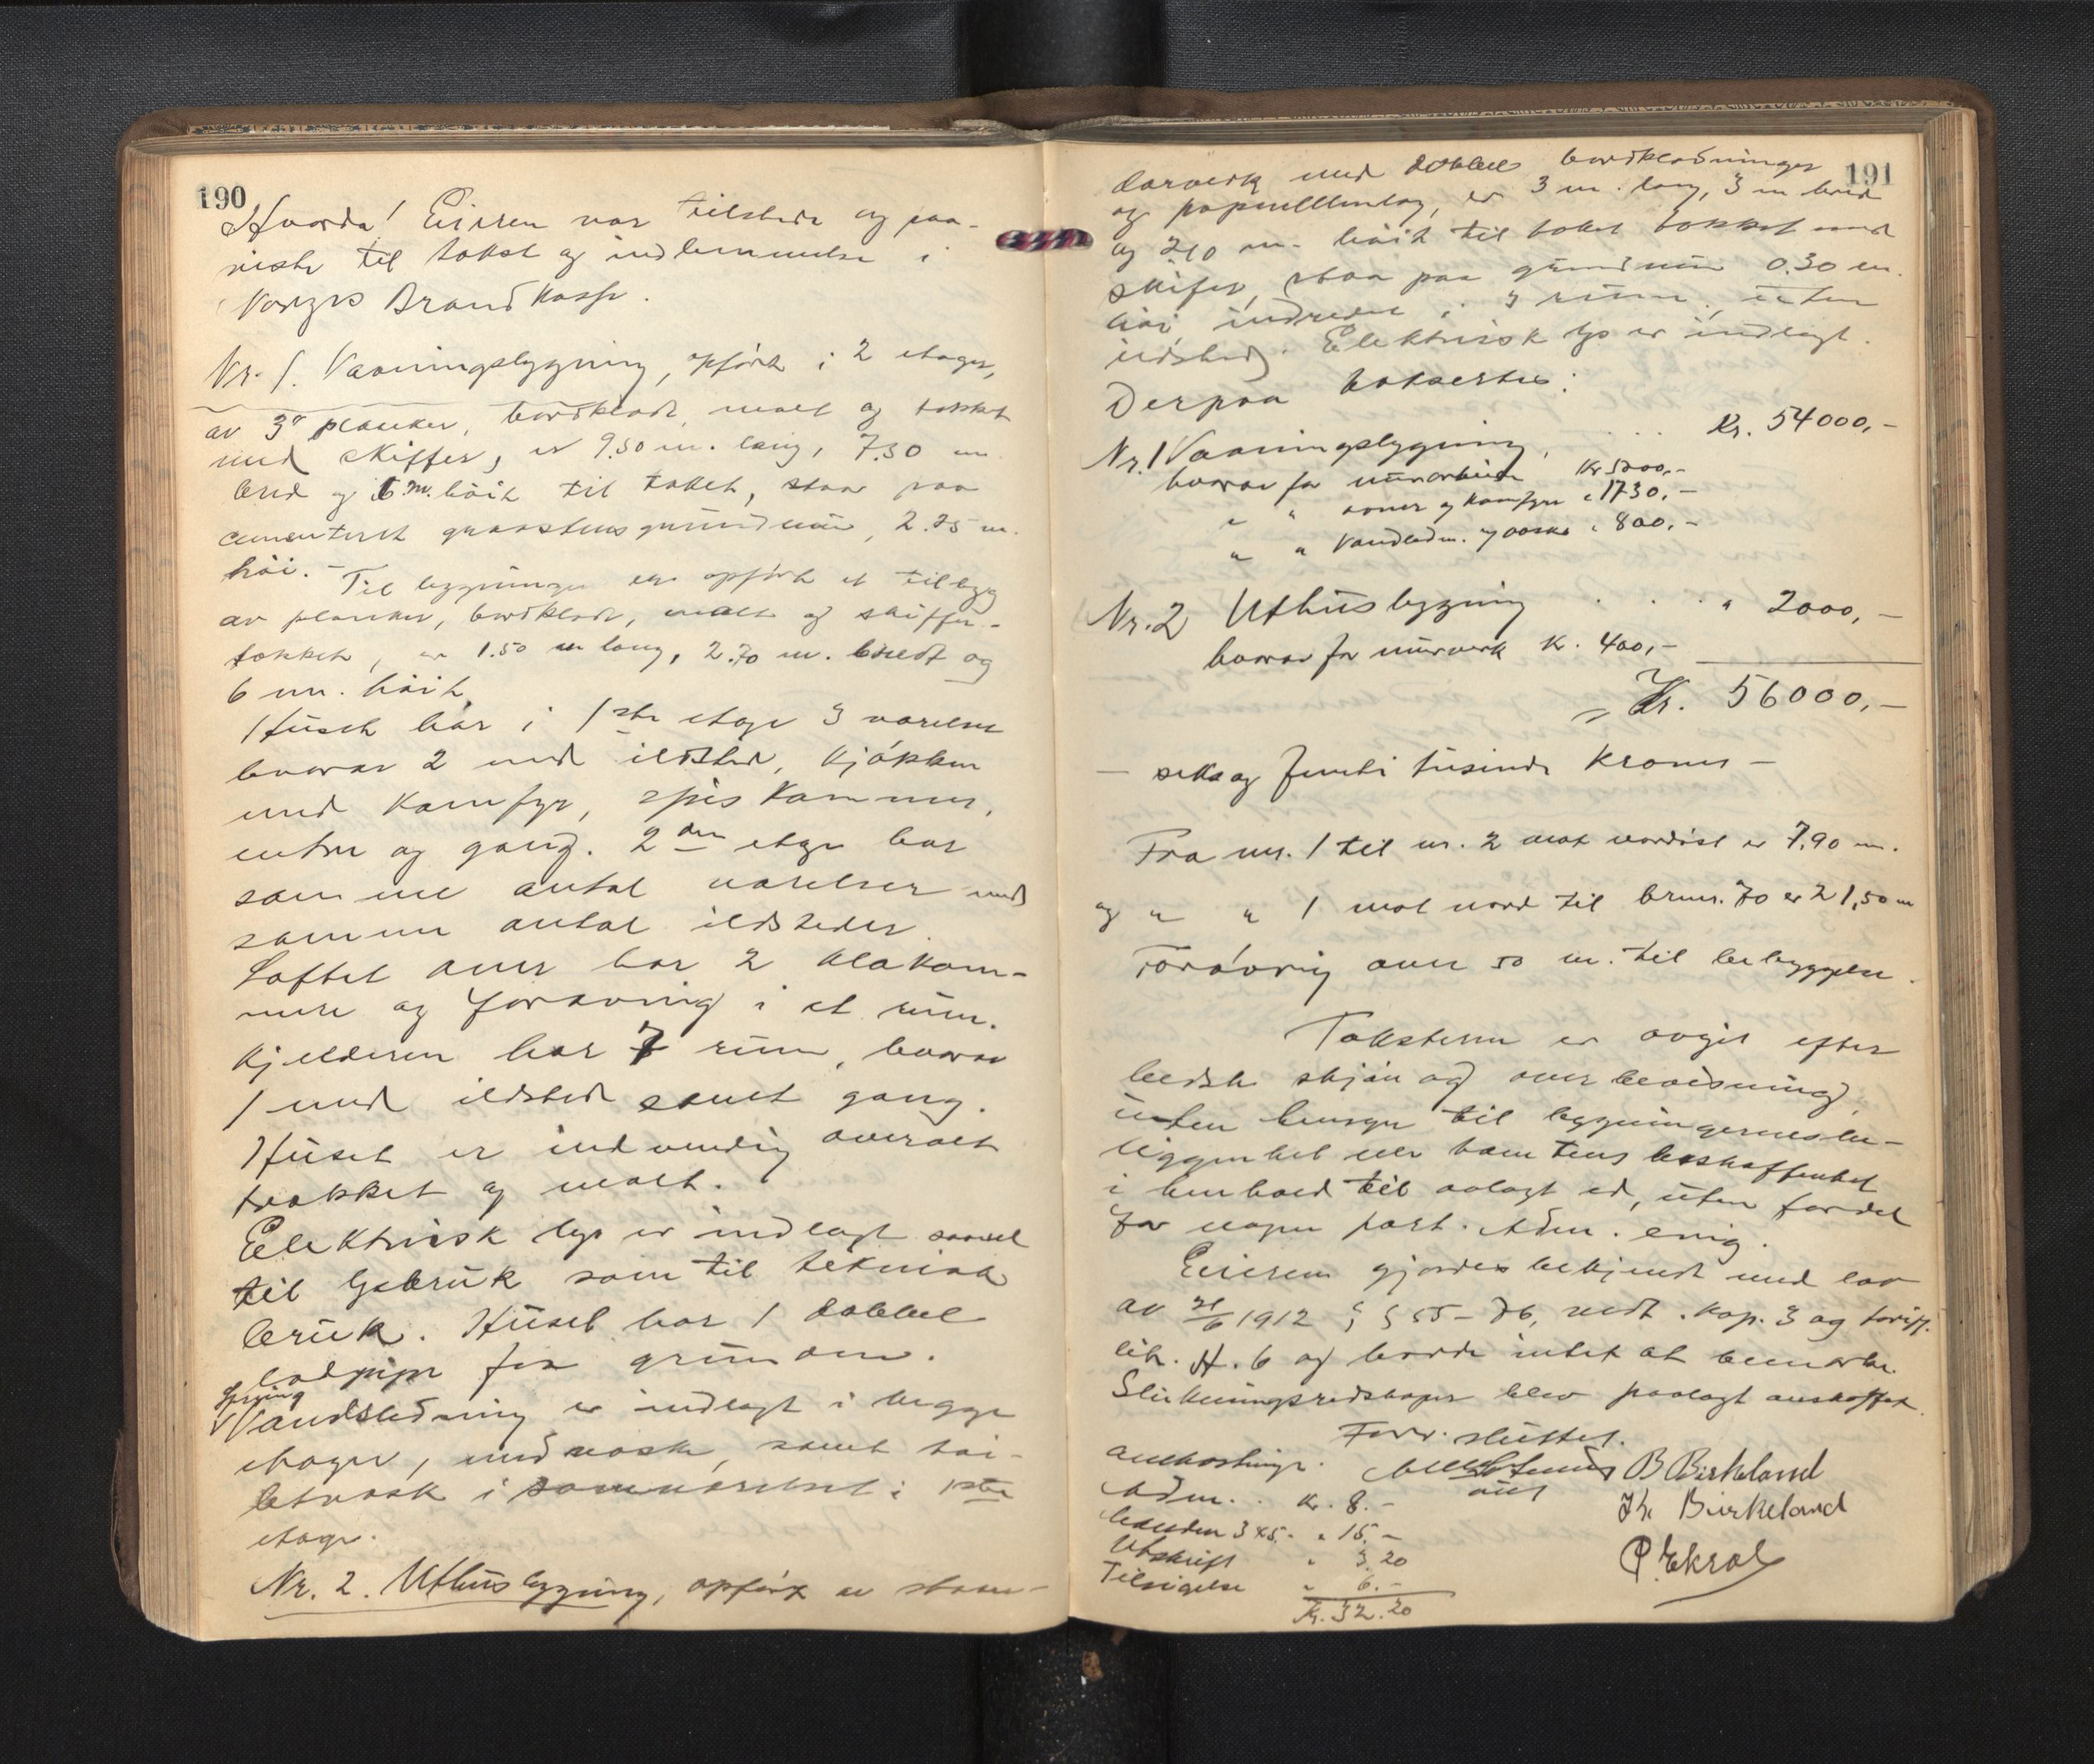 190
Hvorda! Eieren var tilstede og paa-
viste til takst og indlemmelse i
Norges Brandkasse.
Nr. 1. Vaaningsbygning, opført i 2 etager,
av 3" planker, bordklædt, malt og tækket
med skiffer, er 9.50 m. lang, 7.30 m
bred og 6 m. høit til taket, staar paa
cementeret graastensgrundmur, 2.25 m.
høi. -
Til bygningen er opført et tilbyg
av planker, bordklædt, malt og skiffer-
tækket, er 1.50 m lang, 2.70 m. bredt og
6 m. høit.
Huset har i 1ste etage 3 værelser
hvorav 2 med ildsted, kjøkken
med komfyr, spiskammer,
entre og gang. 2den etage har
samme antal værelser med
samme antal ildsteder.
Loftet over har 2 klækam-
mere og forøvrig i et rum.
Kjelderen har 7 rum, hvorav
1 med ildsted samt gang.
Huset er indvendig overalt
trækket og malt.
Elektrisk lys er indlagt saavel
til lysbruk som til teknisk
bruk. Huset har 1 dobbel
lodpipe fra grunden.
Spring
Vandledning er indlagt i begge
etager, med vask, samt toi-
letvask i soveværelset i 1ste
etage.
Nr. 2. Uthusbygning, opført av stav-
191
darverk med dobbel bordklædninger
og papmellemlag, er 3 m. lang, 3 m bred
og 2.10 m. høit til taket tækket med
skifer, staa paa grundmur 0.30 m.
høi indredet i 3 rum, uten
ildsted. Elektrisk lys er indlagt.
Derpaa takseertes:
Nr. 1 Vaaningsbygning, . . . Kr. 54000,-
hvorav for murarbeide Kr 5200,-
" " ovner og komfyrer " 1730,-
" " Vandledn. og vaske " 800,-
Nr. 2 Uthusbygning . . . " 2000,-
hvorav for murverk K. 400,-
= Kr. 56000,-
- seksogfemti tusinde Kroner -
Fra nr. 1 til nr. 2 mot nordøst er 7,90 m.
og " " 1 mot nord til brnr. 70 er 21,50 m
Forøvrig over 50 m. til bebyggelse.
Taksterne er avgit efter
bedste skjøn og overbevisning,
uten hensyn til bygningernes be-
liggenhet eller tomtens beskaffenhet
i henhold til avlagt ed, uten fordel
for nogen part. Adm. enig.
Eieren gjordes bekjendt med lov
av 21/6 1912 § § 55-76, vedt. kap. 3 og tariff.
litr. H. 6 og havde intet at bemerke.
Slukningsredskaper blev paalagt anskaffet.
Forr. sluttet.
Omkostninger.
Adm. . Kr. 8.-
B Birkeland
Mænden 3x5.- " 15.-
Kr. Birkeland
Utskrift " 3.20
P. Ekrol
Tilsigelse " 6.-
Kr. 32.20